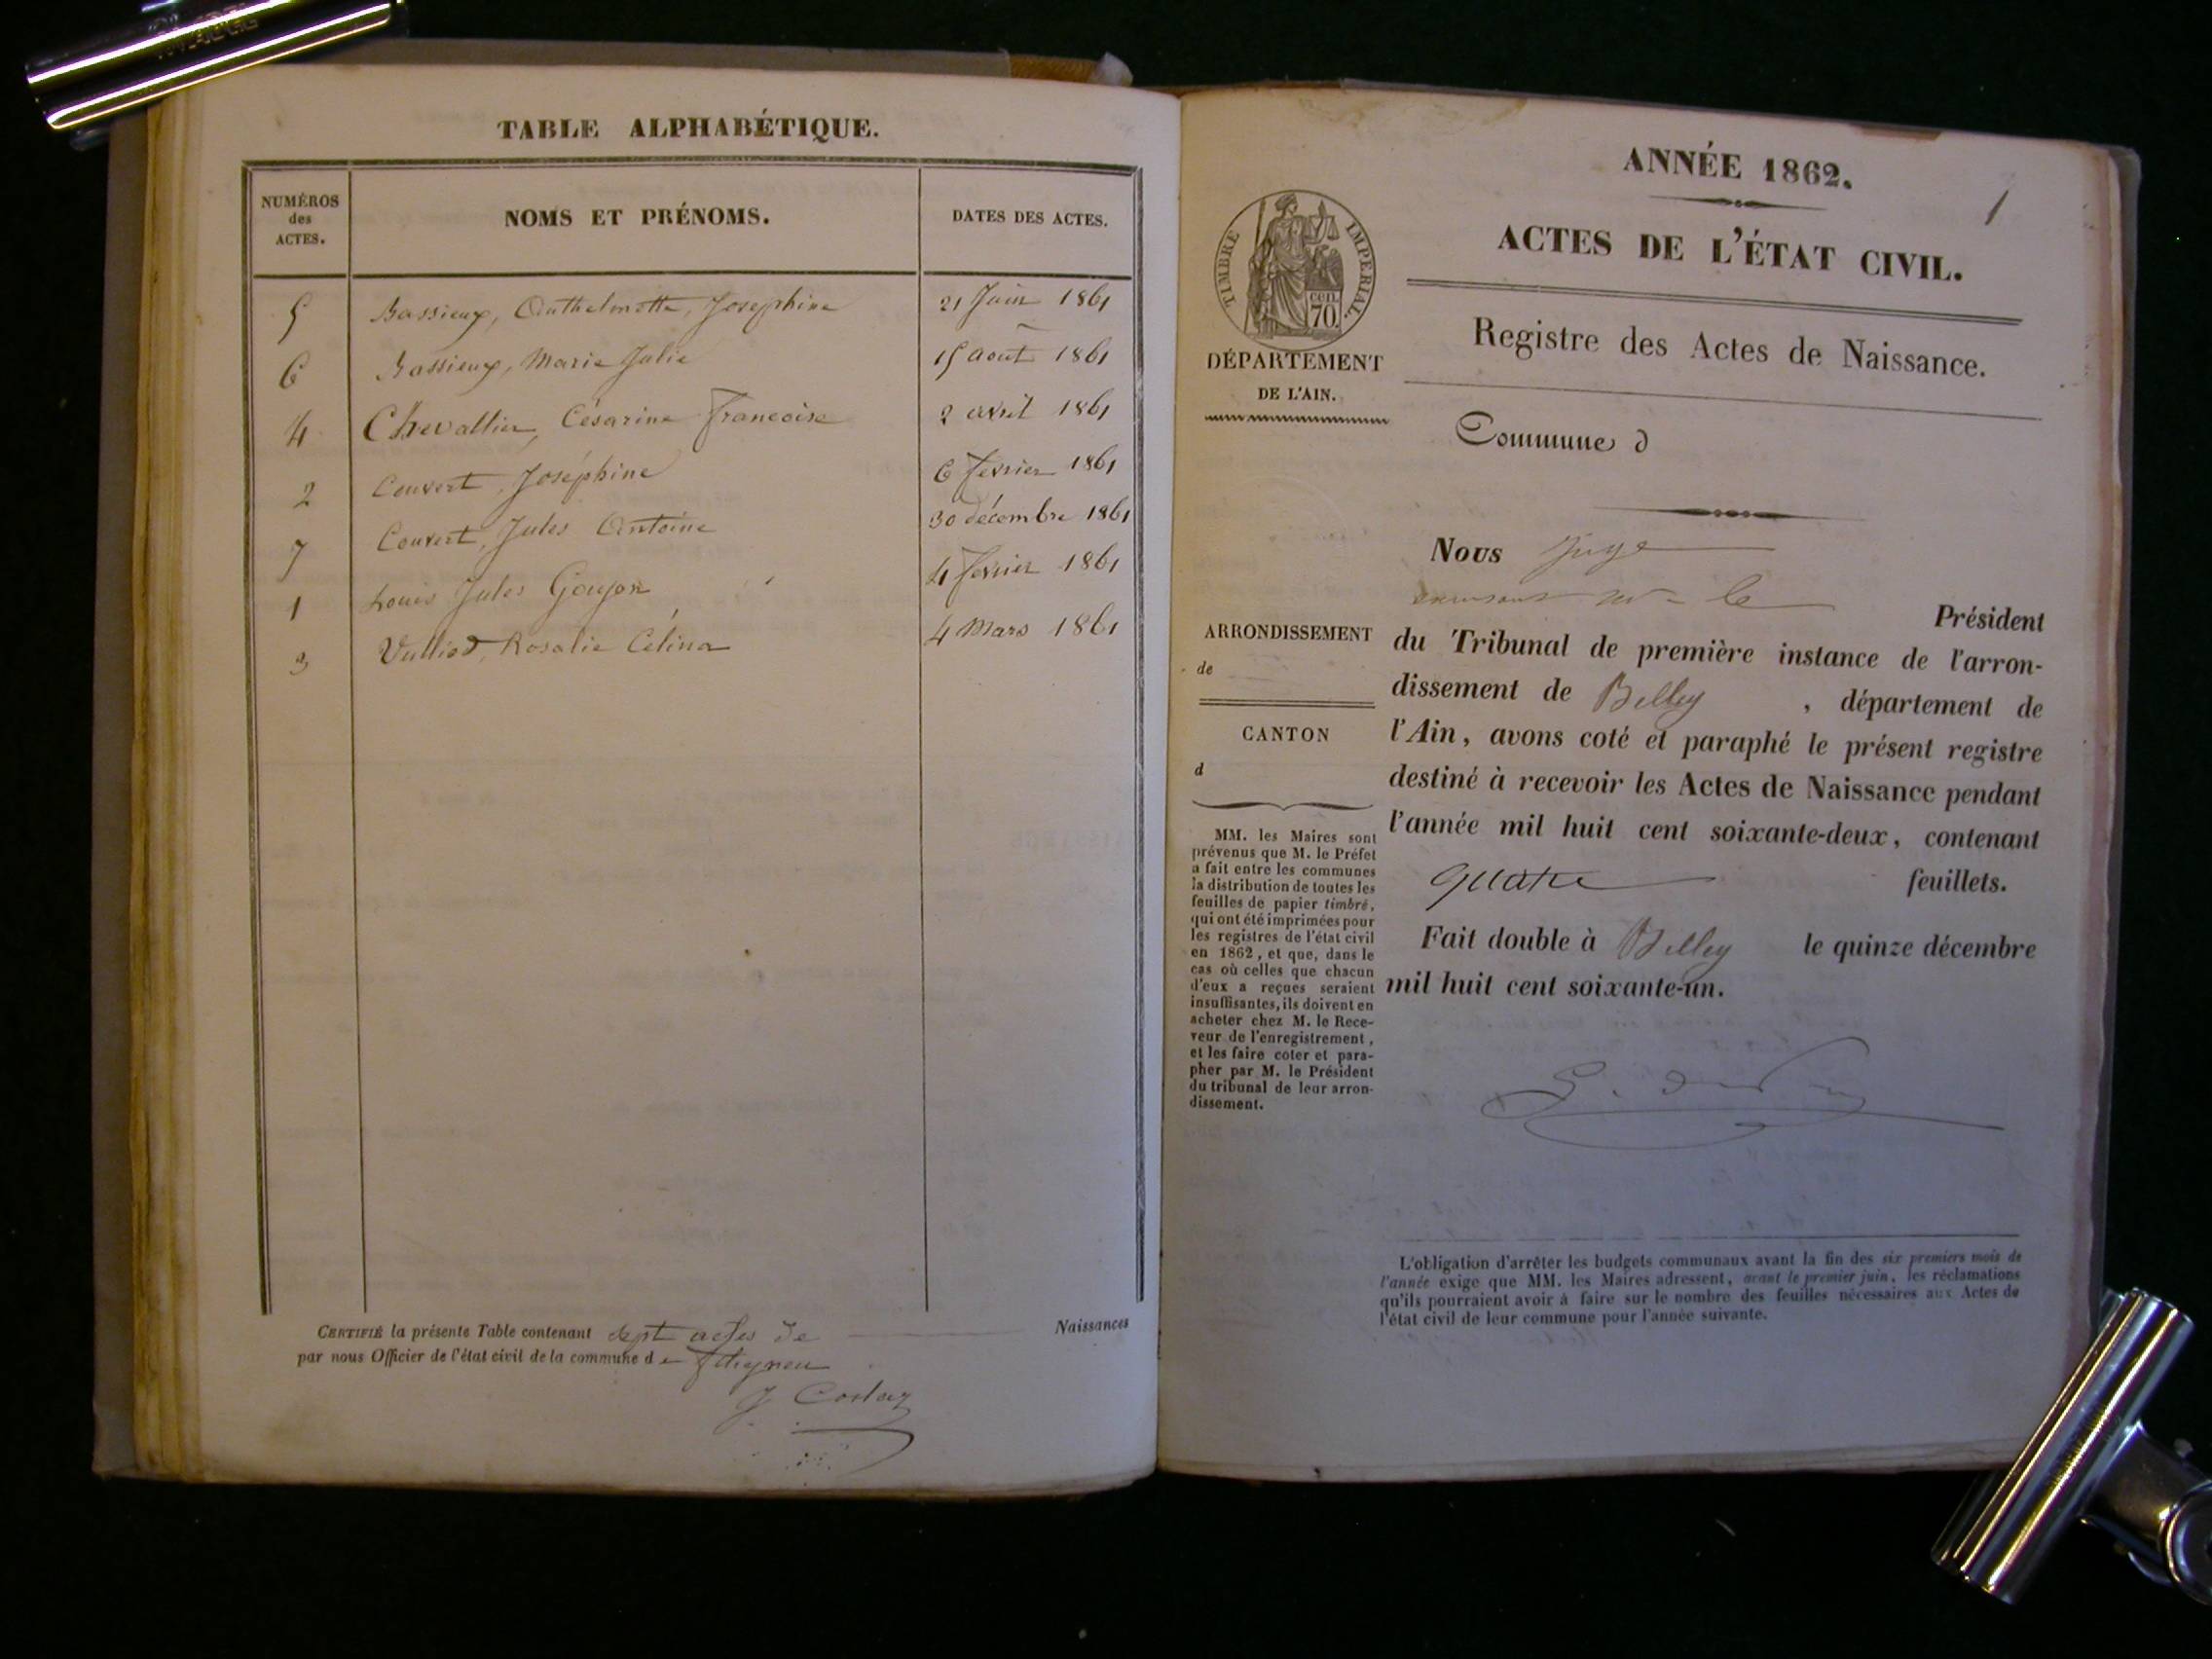 TABLE ALPHABÉTIQUE.
NUMÉROS
des
ACTES.
NOMS ET PRÉNOMS.
DATES DES ACTES.
5 Bassieux, Anthelmette, Josephine 21 Juin 1861
6 Bassieux, Marie Julie 15 aout 1861
4 Chevallier, Césarine Francoise 2 avril 1861
2 Couvert, Joséphine 6 fevrier 1861
7 Couvert, Jules Antoine 30 décembre 1861
1 Louis Jules Goujon 4 fevrier 1861
3 Vulliod, Rosalie Célina 4 Mars 1861
CERTIFIÉ la présente Table contenant sept actes de Naissances
par nous Officier de l'état civil de la commune de
J Costaz
ANNÉE 1862.
1
ACTES DE L'ÉTAT CIVIL.
TIMBRE IMPERIAL.
cen.
70.
Registre des Actes de Naissance.
DÉPARTEMENT
DE L'AIN.
Commune d
Nous Juge
le Président
ARRONDISSEMENT
de
CANTON
d
du Tribunal de première instance de l'arron-
dissement de Belley , département de
l'Ain, avons coté et paraphé le présent registre
destiné à recevoir les Actes de Naissance pendant
l'année mil huit cent soixante-deux, contenant
quatre feuillets.
Fait double à Belley le quinze décembre
mil huit cent soixante-un.
MM. les Maires sont
prévenus que M. le Préfet
a fait entre les communes
la distribution de toutes les
feuilles de papier timbré,
qui ont été imprimées pour
les registres de l'état civil
en 1862, et que, dans le
cas où celles que chacun
d'eux a reçues seraient
insuffisantes, ils doivent en
acheter chez M. le Rece-
veur de l'enregistrement,
et les faire coter et para-
pher par M. le Président
du tribunal de leur arron-
dissement.
L'obligation d'arrêter les budgets communaux avant la fin des six premiers mois de
l'année exige que MM. les Maires adressent, avant le premier juin, les réclamations
qu'ils pourraient avoir à faire sur le nombre des feuilles nécessaires aux Actes de
l'état civil de leur commune pour l'année suivante.